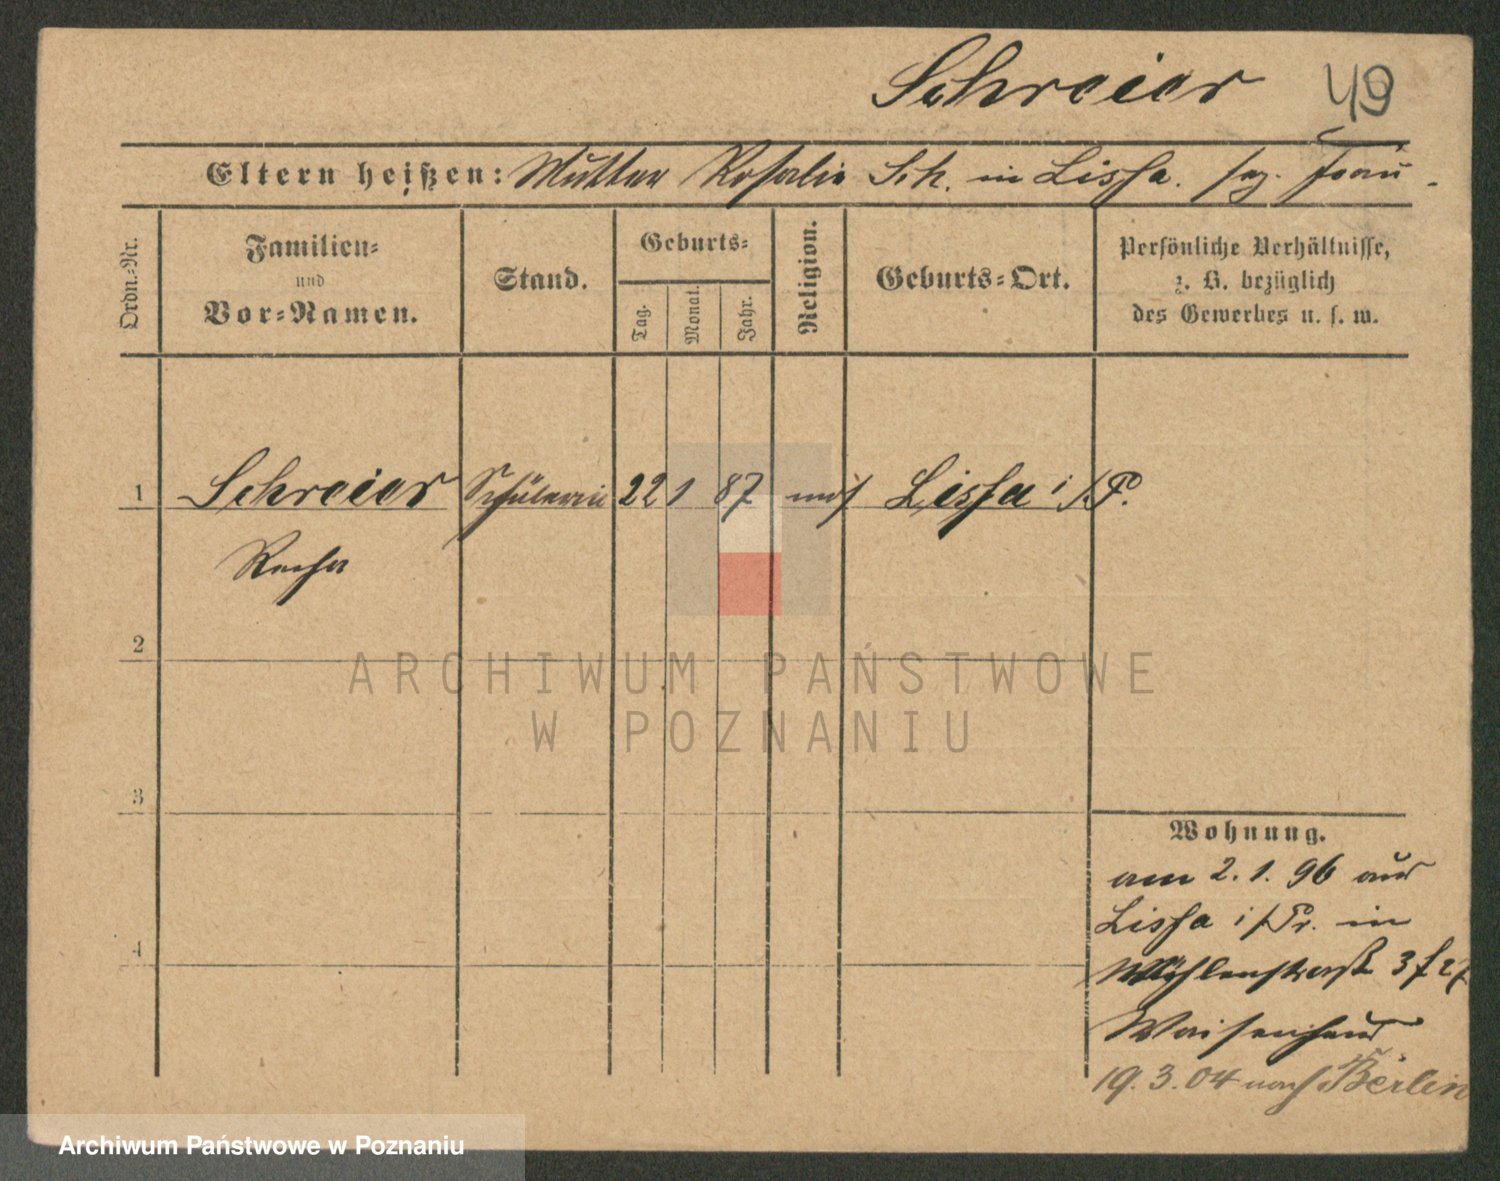 Schreier 49
Eltern heißen: Mutter Rosalie Sch. in Lissa.
Ordn.-Nr.
Familien-
und
Vor-Namen.
Stand.
Geburts-
Tag.
Monat.
Jahr.
Religion.
Geburts-Ort.
Persönliche Verhältnisse,
z. B. bezüglich
des Gewerbes u. s. w.
1 Schreier Schülerin 22 1 87 mos Lissa i/P.
Recha
2
ARCHIWUM PAŃSTWOWE
W POZNANIU
3
Wohnung.
am 2. 1. 96 aus
Lissa i/Pr. in
4
Mühlenstraße 3
Waisenhaus
19. 3. 04 nach Berlin
Archiwum Państwowe w Poznaniu